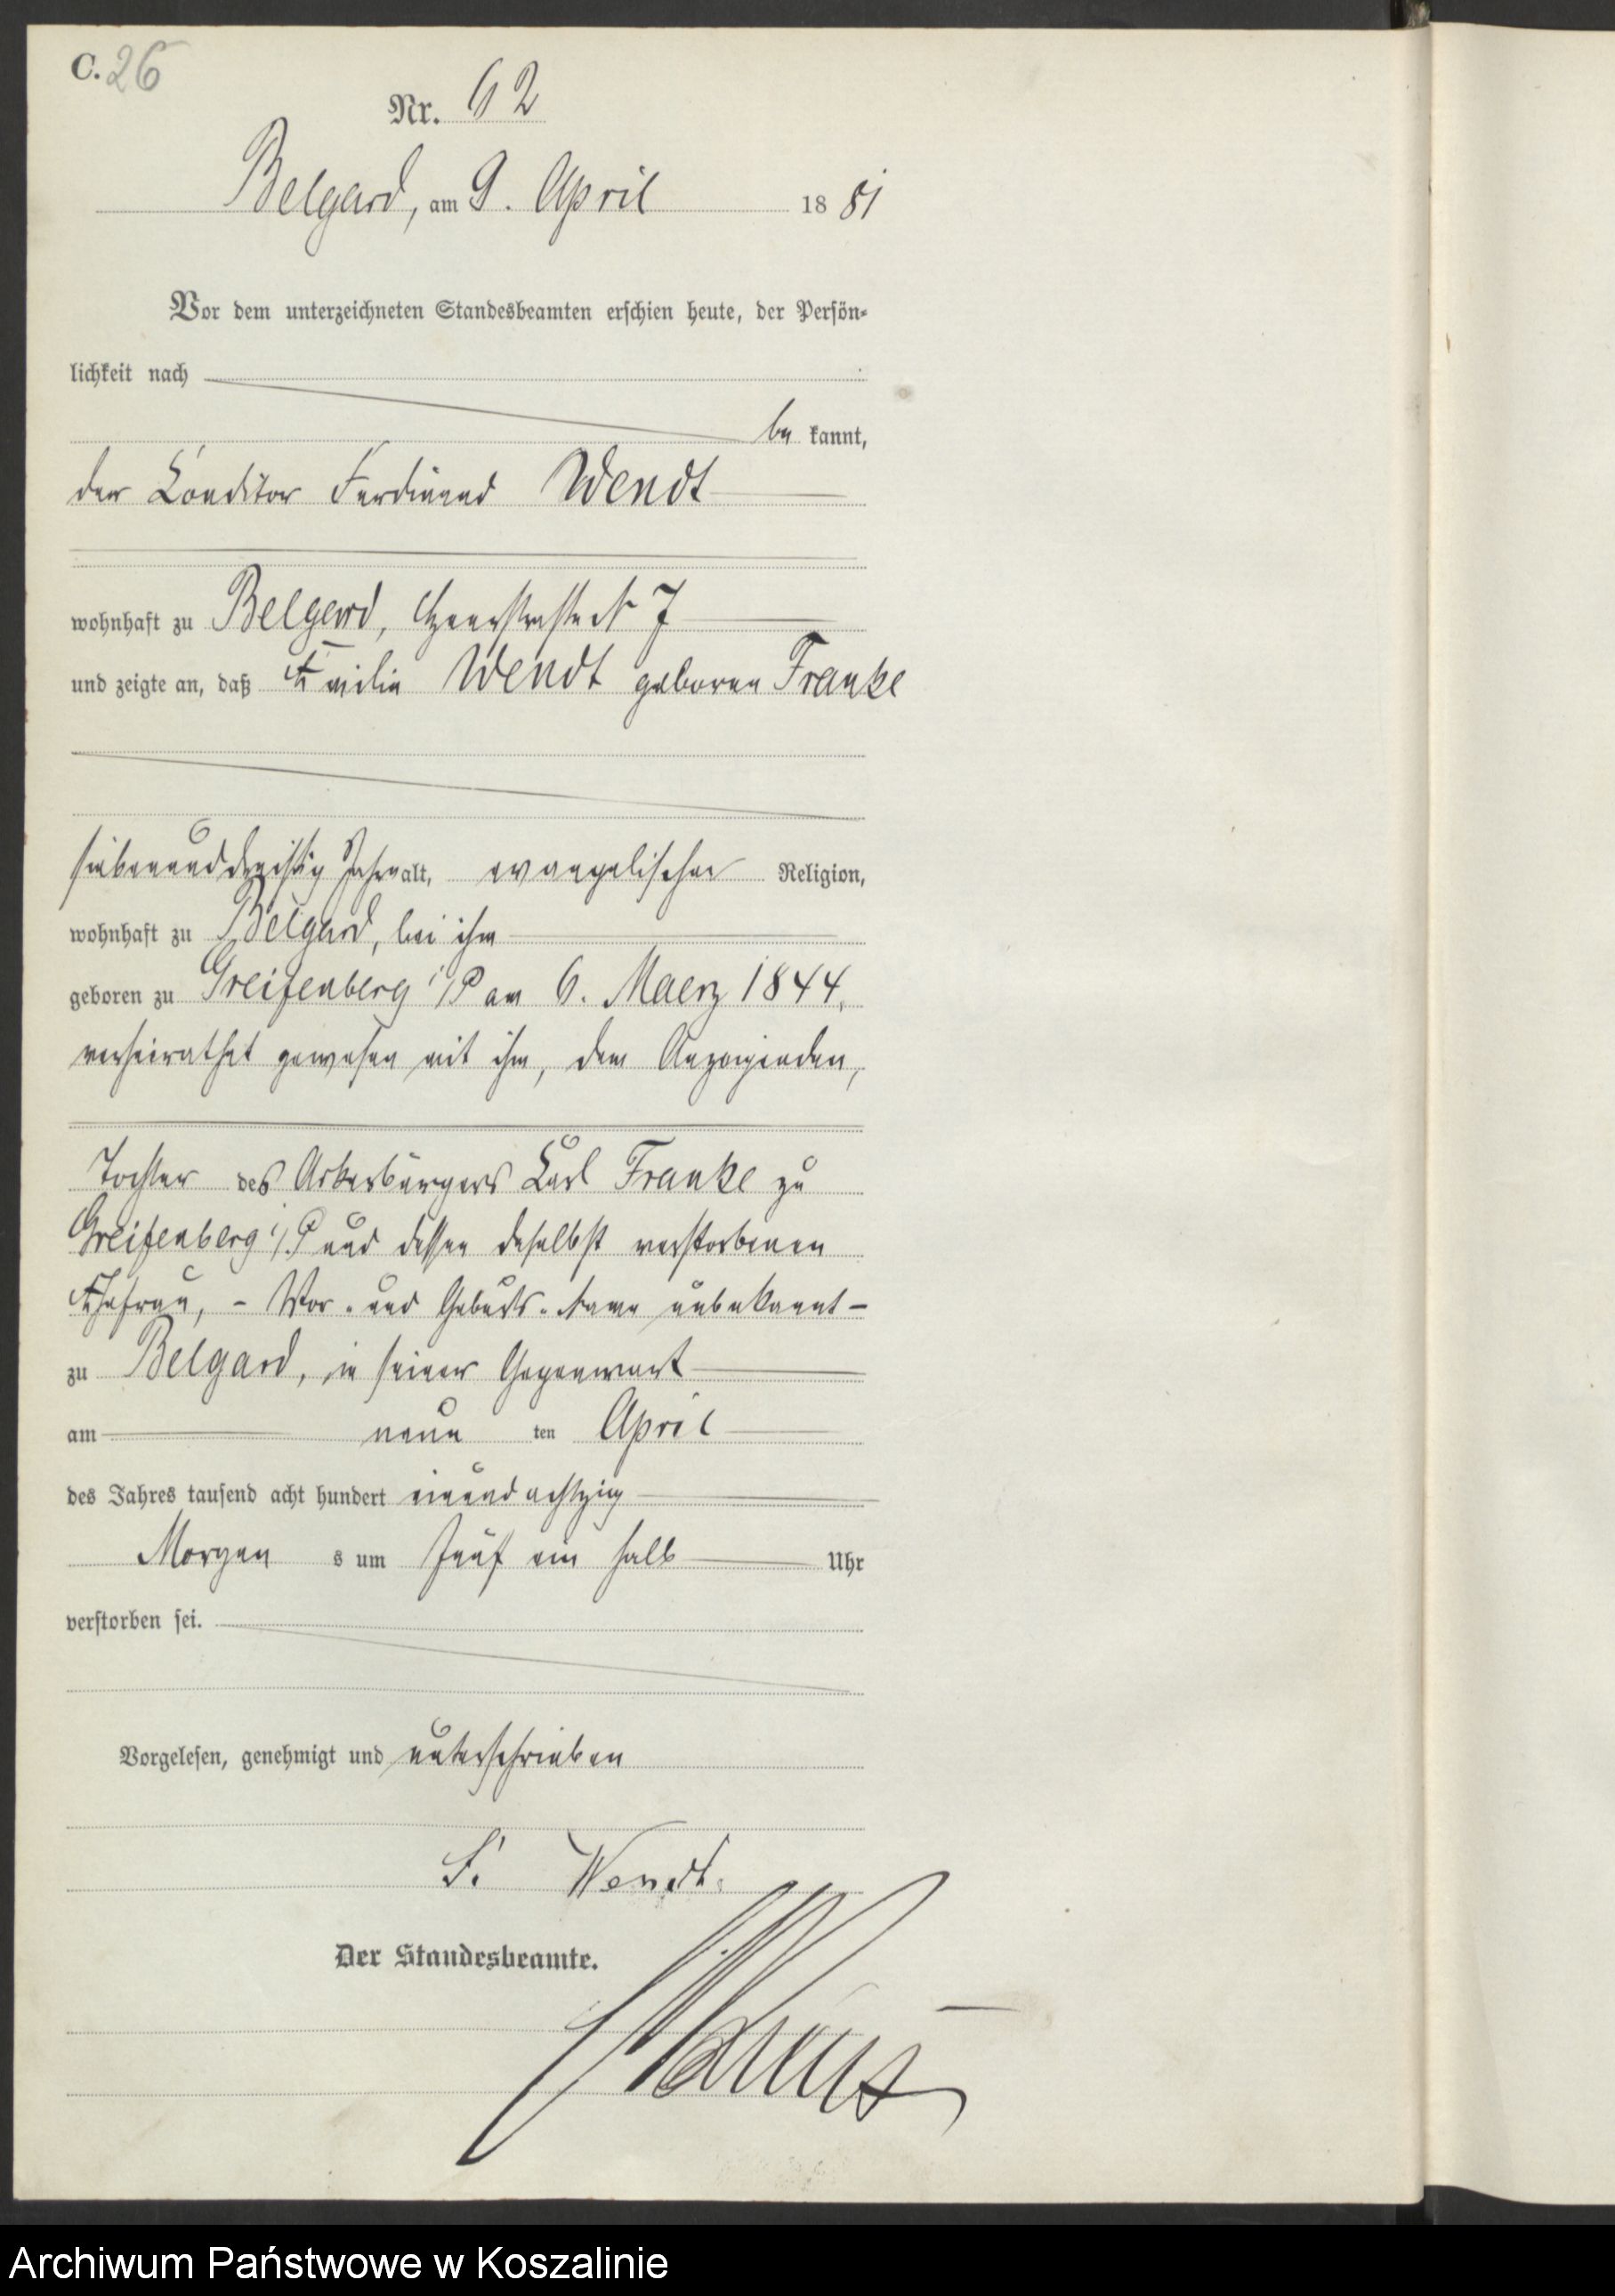 C. 26
Nr. 62
Belgard, am 9. April 1881
Vor dem unterzeichneten Standesbeamten erschien heute, der Persön-
lichkeit nach
be kannt,
der Conditor Ferdinand Wendt
wohnhaft zu Belgard, 7
und zeigte an, daß Emilie Wendt geborene Franke
siebenunddreißig Jahre alt, evangelischer Religion,
wohnhaft zu Belgard, bei ihm
geboren zu Greifenberg i/P am 6. Maerz 1844,
verheirathet gewesen mit ihm, dem Anzeigenden,
Tochter des Ackerbürgers Carl Franke zu
Greifenberg i/P und dessen daselbst verstorbenen
Ehefrau, - Vor- und Geburts-Name unbekannt -
zu Belgard, in seiner Gegenwart
am neun ten April
des Jahres tausend acht hundert einundachtzig
Morgen s um fünf ein halb Uhr
verstorben sei.
Vorgelesen, genehmigt und unterschrieben
F. Wendt.
Der Standesbeamte.
Archiwum Państwowe w Koszalinie